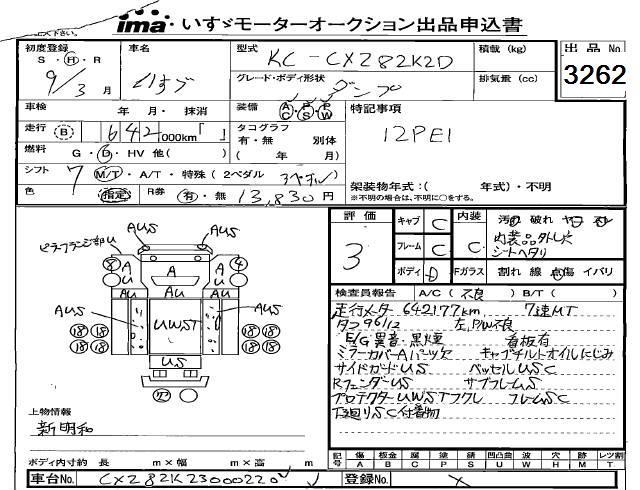 ima いすゞモーターオークション出品申込書
初度登録
S・H・R
9/3月
車名
いすゞ
型式
KC-CXZ82K2D
グレード・ボディ形状
ダンプ
積載 (kg)
排気量 (cc)
出品 No
3262
車検 年 月・ 抹消
走行 B 642,000km「 」
燃料 G・D・HV 他( )
シフト 7 M/T・A/T・特殊 (2ペダル 3ペダル
色 指定 R券 有・無 13,830円
装備 A/C P/S P/W
タコグラフ
有・無 別体
( 年 月)
特記事項
12PE1
架装物年式:( 年式)・不明
※不明の場合は、不明に○をする。
評価
3
キャブ C
フレーム C
ボディ D
内装 C
Fガラス
汚 破れ ヤコ スレ
内装品外し穴
シートヘタリ
割れ 線 点傷 イバリ
検査員報告 A/C(不良 ) B/T( )
走行メーター 642177km 7速MT
タコ96/12 左P/W不良
E/G異音・黒煙 看板有
ミラーカバーAパーツ欠 キャブチルトオイルにじみ
サイドガードUS ベッセルUSC
RフェンダーUS サブフレームS
プロテクターUWSTフクレ フレームSC
下廻りSC付着物
AUS
ピラーフランジ部U
AUS
A
U
A
A
U
AU
AU
AU
AUS
UWST
AUS
US
18 18
18 18
18 18
18 18
上物情報
新明和
記号 傷 板金 腐 塗 錆 凹 凸凹曲 穴 歪 跡 レツ割
A B C P S U W H M X T
ボディ内寸約 長 m×幅 m×高 m
車台No. CXZ82K23000220
登録No. X